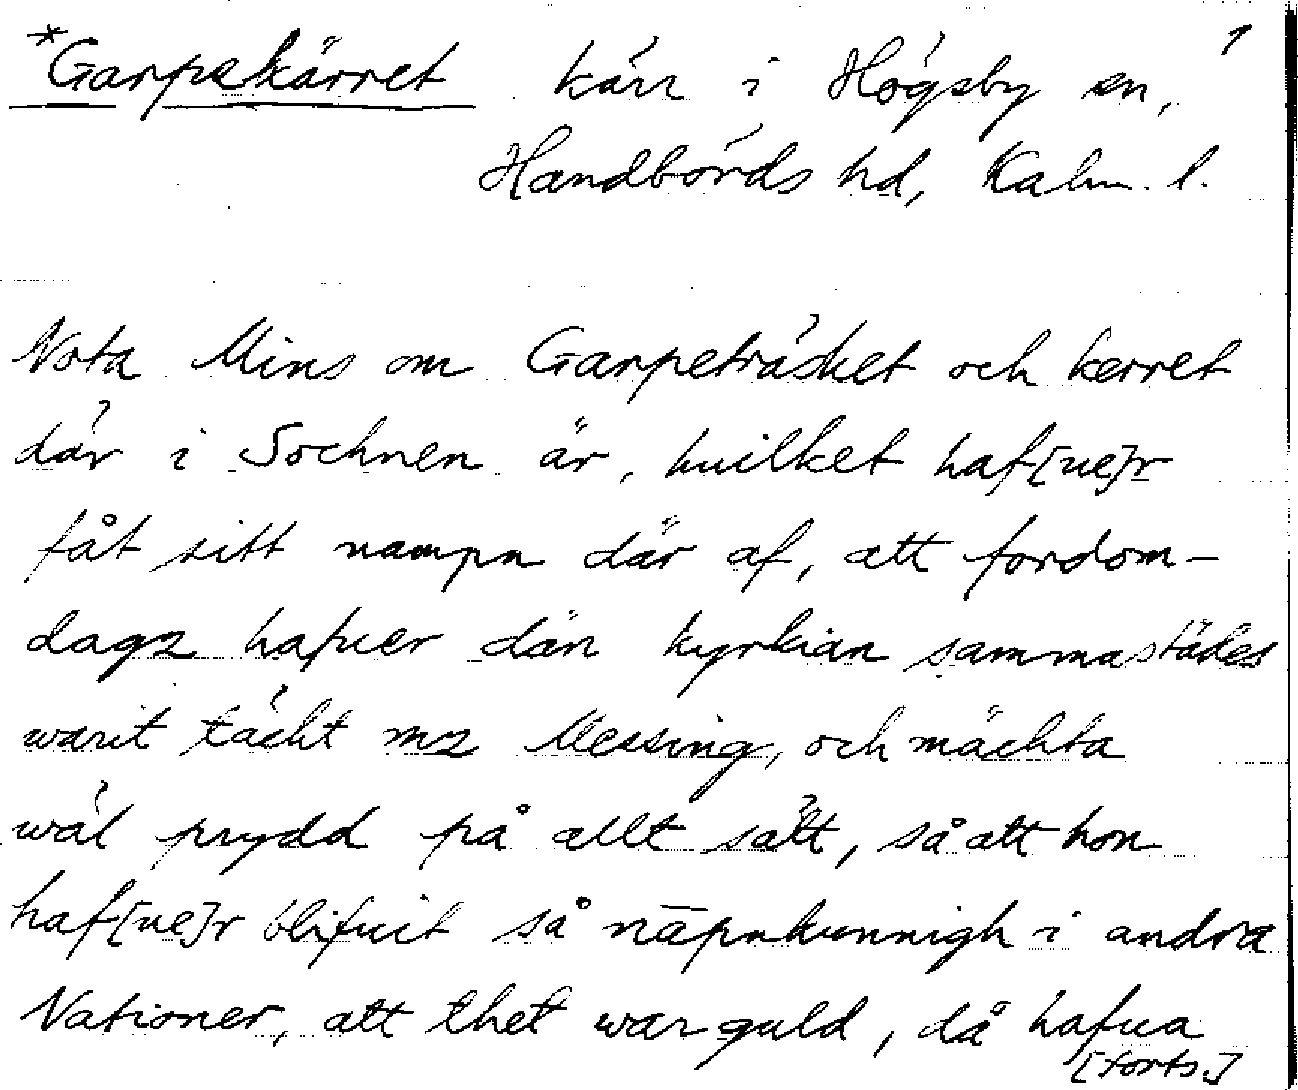 *Garpekärret kärr i Högsby sn, 1
Handbörds hd, Kalm. l.
Nota Mins om Garpeträsket och kerret
där i Sochnen är, huilket haf[ue]r
fåt sitt nampn där af, att fordom-
dagz hafuer dän kyrkian sammastädes
warit täckt mz Messing, och mächta
wäl prydd på allt sätt, så att hon
haf[ue]r blifuit så nāpnkunnigh i andra
Nationer, att thet war guld, då hafua
[forts.]